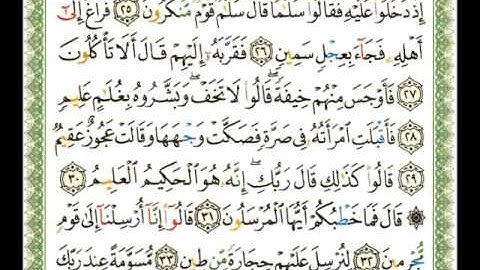 إِذْ دَخَلُوا۟ عَلَيْهِ فَقَالُوا۟ سَلَـٰمًا قَالَ سَلَـٰمٌ قَوْمٌ مُّنكَرُونَ ٢٥ فَرَاغَ إِلَىٰٓ
أَهْلِهِۦ فَجَآءَ بِعِجْلٍ سَمِينٍ ٢٦ فَقَرَّبَهُۥٓ إِلَيْهِمْ قَالَ أَلَا تَأْكُلُونَ
٢٧ فَأَوْجَسَ مِنْهُمْ خِيفَةً قَالُوا۟ لَا تَخَفْ وَبَشَّرُوهُ بِغُلَـٰمٍ عَلِيمٍ
٢٨ فَأَقْبَلَتِ ٱمْرَأَتُهُۥ فِى صَرَّةٍ فَصَكَّتْ وَجْهَهَا وَقَالَتْ عَجُوزٌ عَقِيمٌ
٢٩ قَالُوا۟ كَذَٰلِكِ قَالَ رَبُّكِ إِنَّهُۥ هُوَ ٱلْحَكِيمُ ٱلْعَلِيمُ ٣٠
۞ قَالَ فَمَا خَطْبُكُمْ أَيُّهَا ٱلْمُرْسَلُونَ ٣١ قَالُوٓا۟ إِنَّآ أُرْسِلْنَآ إِلَىٰ قَوْمٍ
مُّجْرِمِينَ ٣٢ لِنُرْسِلَ عَلَيْهِمْ حِجَارَةً مِّن طِينٍ ٣٣ مُّسَوَّمَةً عِندَ رَبِّكَ